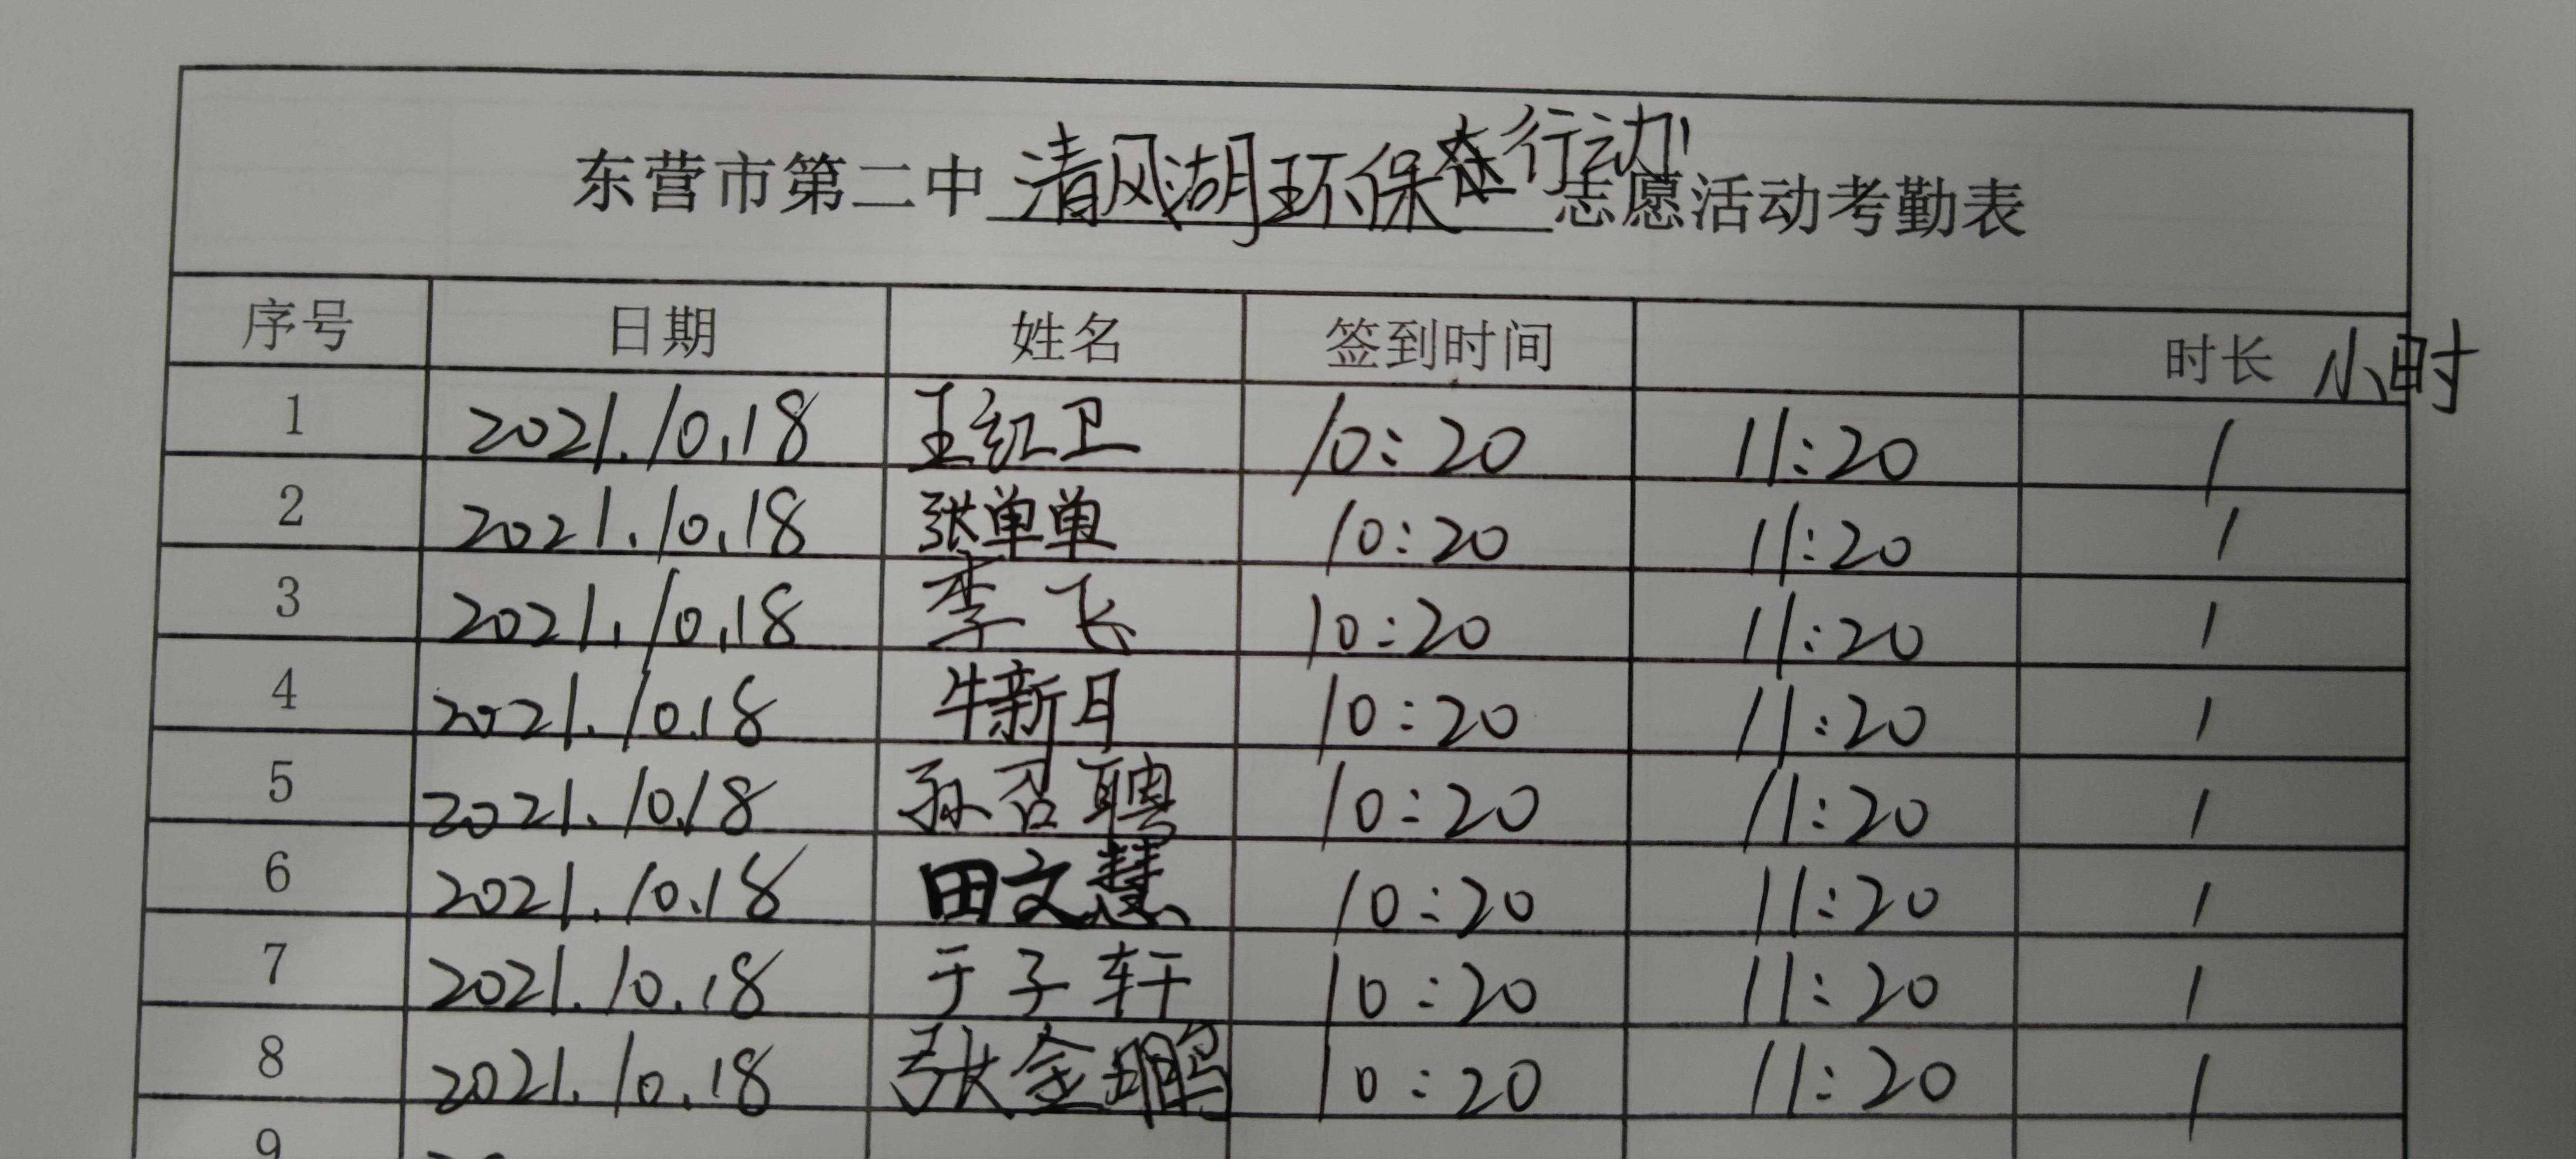 东营市第二中清风湖环保在行动志愿活动考勤表
序号 日期 姓名 签到时间 时长 小时
1 2021.10.18 王红卫 10:20 11:20 1
2 2021.10.18 张单单 10:20 11:20 1
3 2021.10.18 李飞 10:20 11:20 1
4 2021.10.18 牛新月 10:20 11:20 1
5 2021.10.18 孙召聘 10:20 11:20 1
6 2021.10.18 田文慧 10:20 11:20 1
7 2021.10.18 于子轩 10:20 11:20 1
8 2021.10.18 张金鹏 10:20 11:20 1
9